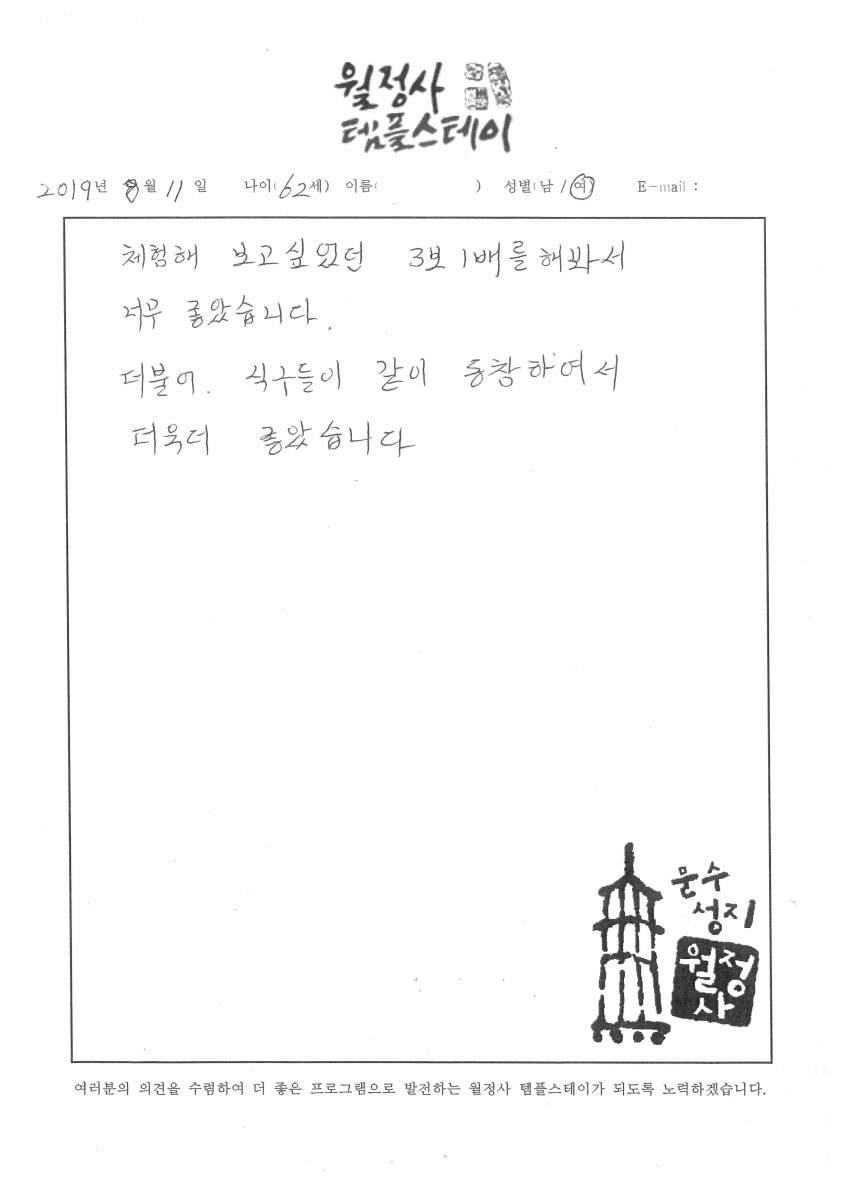 월정사
템플스테이
2019년 8월 11일 나이(62세) 이름( ) 성별(남/여) E-mail :
체험해 보고싶었던 3보1배를해봐서
너무 좋았습니다.
더불어. 식구들이 같이 동참하여서
더욱더 좋았습니다
문수
성지
월정
사
여러분의 의견을 수렴하여 더 좋은 프로그램으로 발전하는 월정사 템플스테이가 되도록 노력하겠습니다.